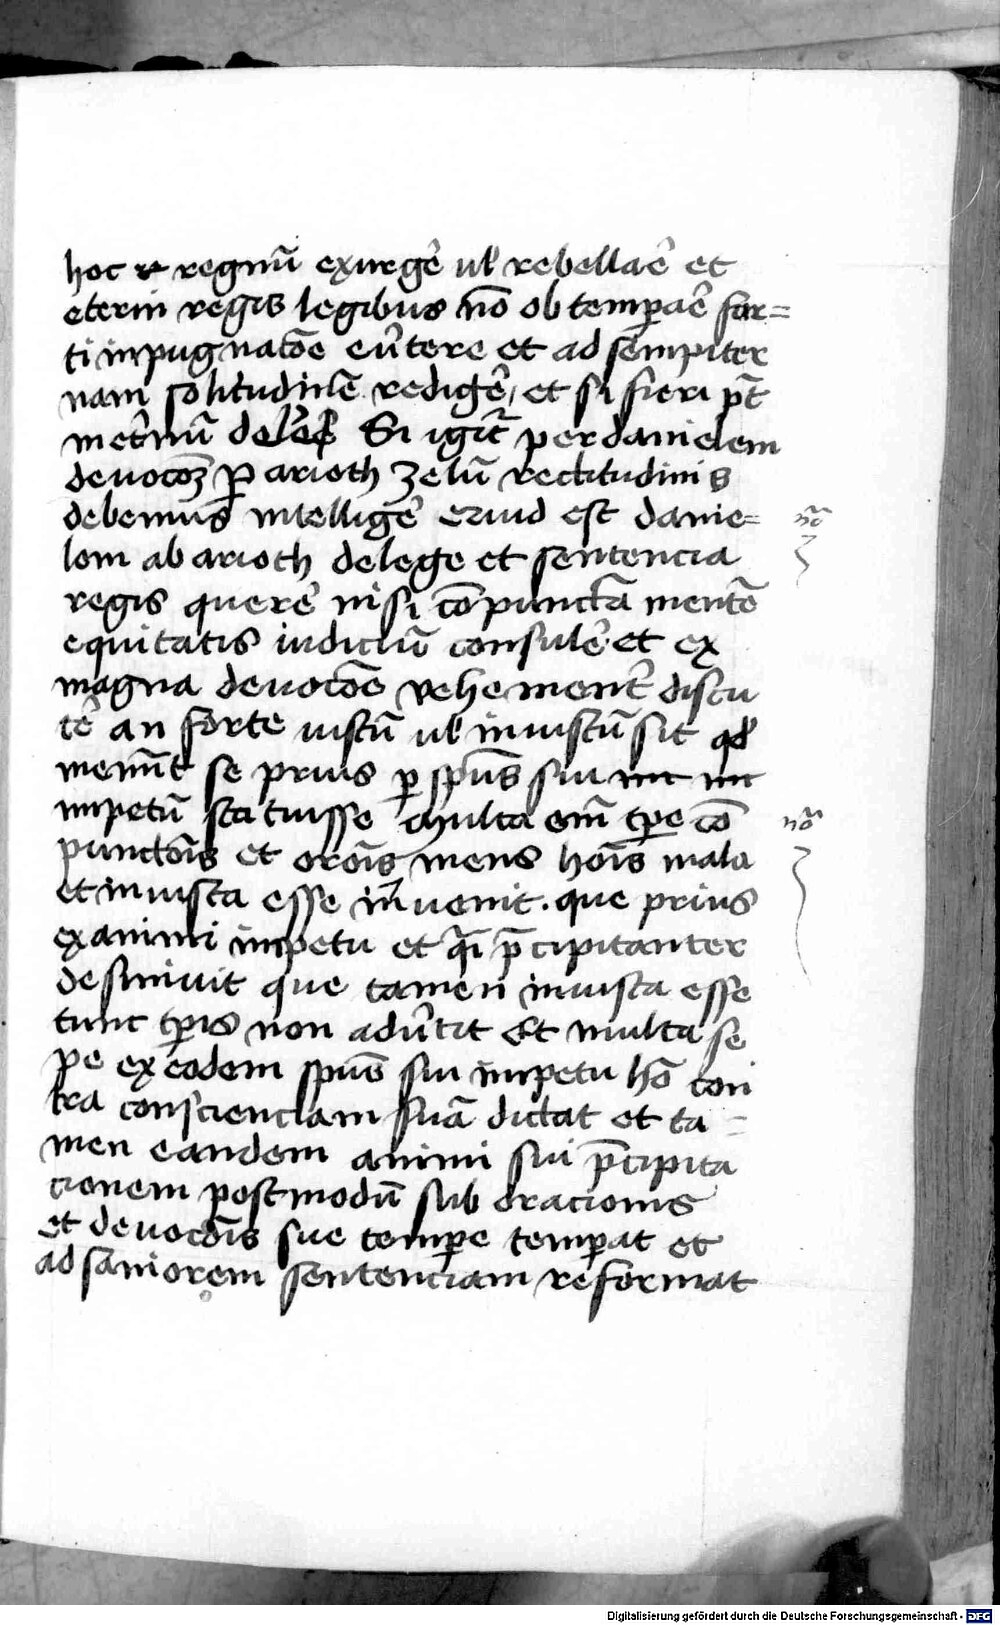 hoc regnū exurgē ul̄ rebellaē et
eterni regis legibus nō obtemp̄aē for=
ti inpugnatōe eūtere et ad sempiter
nam solitudinē redigē, et si fieri pt̄
Si igit̄ per danielem
deuocōꝫ ꝑ arioth zelū rectitudinis
debemus intelligē eciud est danie= nō
lom ab arioth de lege et sentencia
regis querē nisi cōpunctā mentē
equitatis iudiciū consulē et ex
magna deuocōe vehement̄ discu
tē an forte iustū ul̄ iniustū sit qd̄
menūt se prius ꝑ spūs sui
impetū statuisse Multa em̄ tp̄e cō nō
punctōis et orōis mens hoīs mala
et iniusta esse inuenit. que prius
ex animi impetu et q̄i p̄cipitanter
definiuit que tamen iniusta esse
tunc tp̄is non adūtit Et multa se
pe ex eodem spūs sui impetu hō con
tra conscienciam suā dictat et ta=
men eandem animi sui p̄cipita
cionem postmodū sub oracionis
et deuocōis sue temp̄e temp̄at et
ad saniorem sentenciam reformat
Digitalisierung gefördert durch die Deutsche Forschungsgemeinschaft - DFG